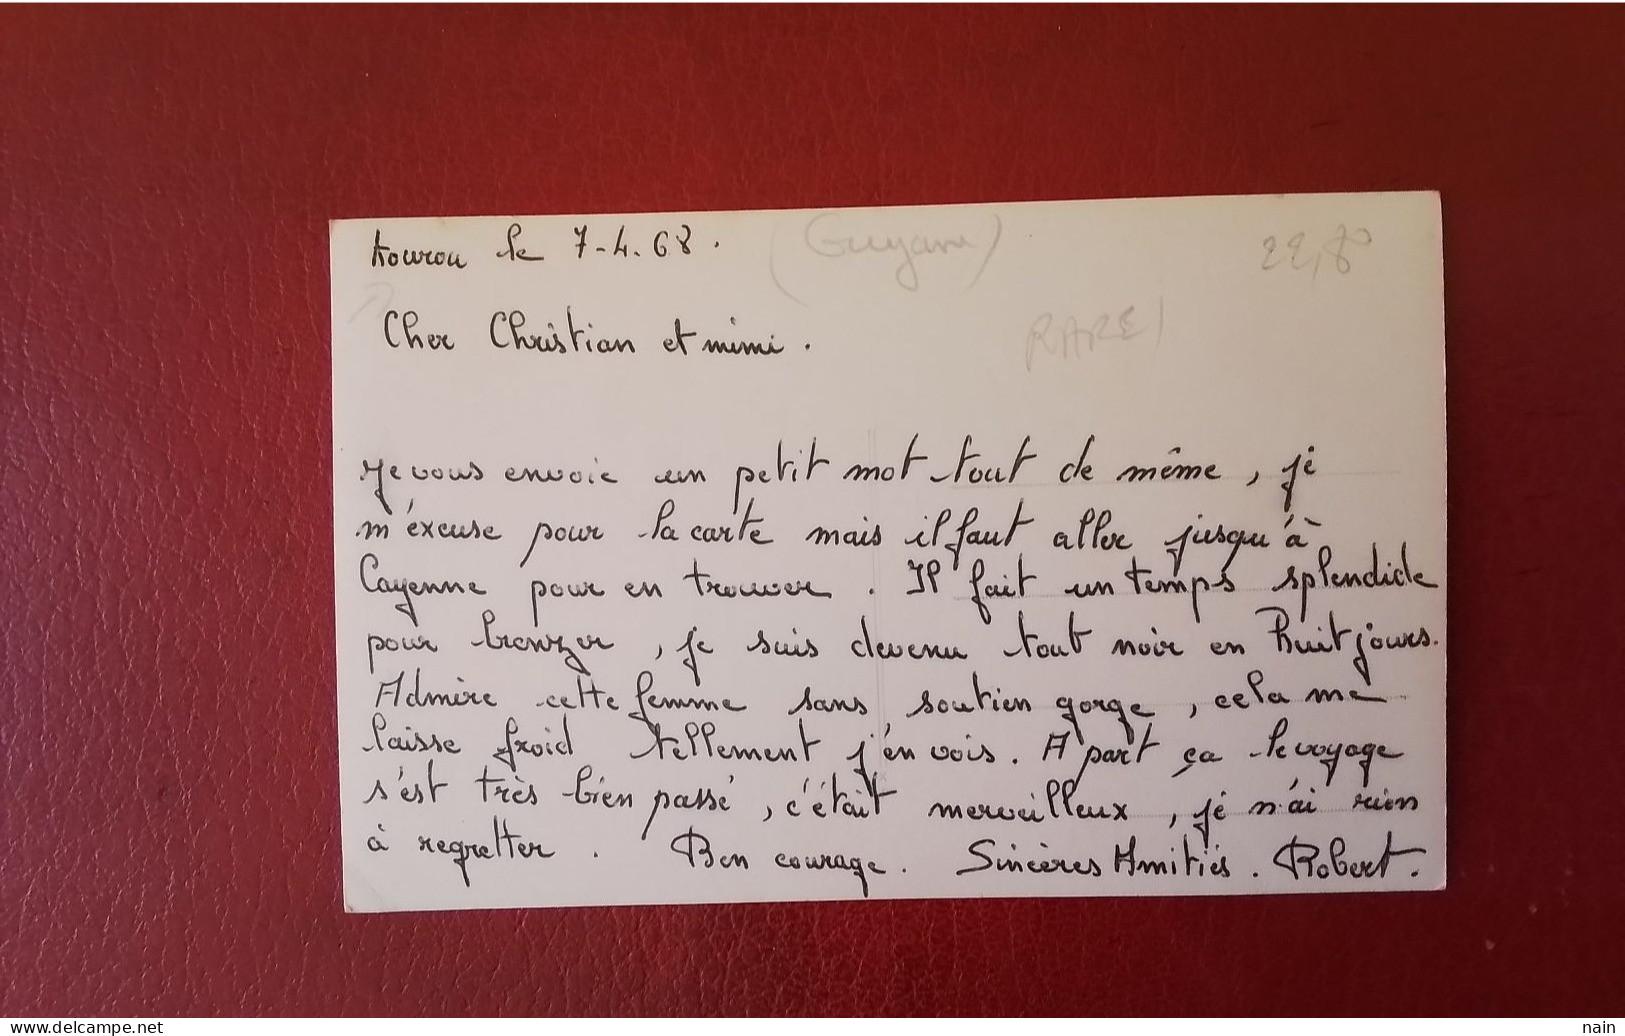 Kourou le 7-4.68. (Guyane) 22,80
Cher Christian et mimi. RARE!
Je vous envoie un petit mot tout de même, je
m'éxcuse pour la carte mais il faut aller jusqu'à
Cayenne pour en trouver. Il fait un temps splendide
pour bronzer, je suis devenu tout noir en huit jours.
Admire cette femme sans soutien gorge, cela me
laisse froid tellement j'en vois. A part ça le voyage
s'est très bien passé, c'était merveilleux, je n'ai rien
à regretter. Bon courage. Sincères Amitiés. Robert.
www.delcampe.net
nain